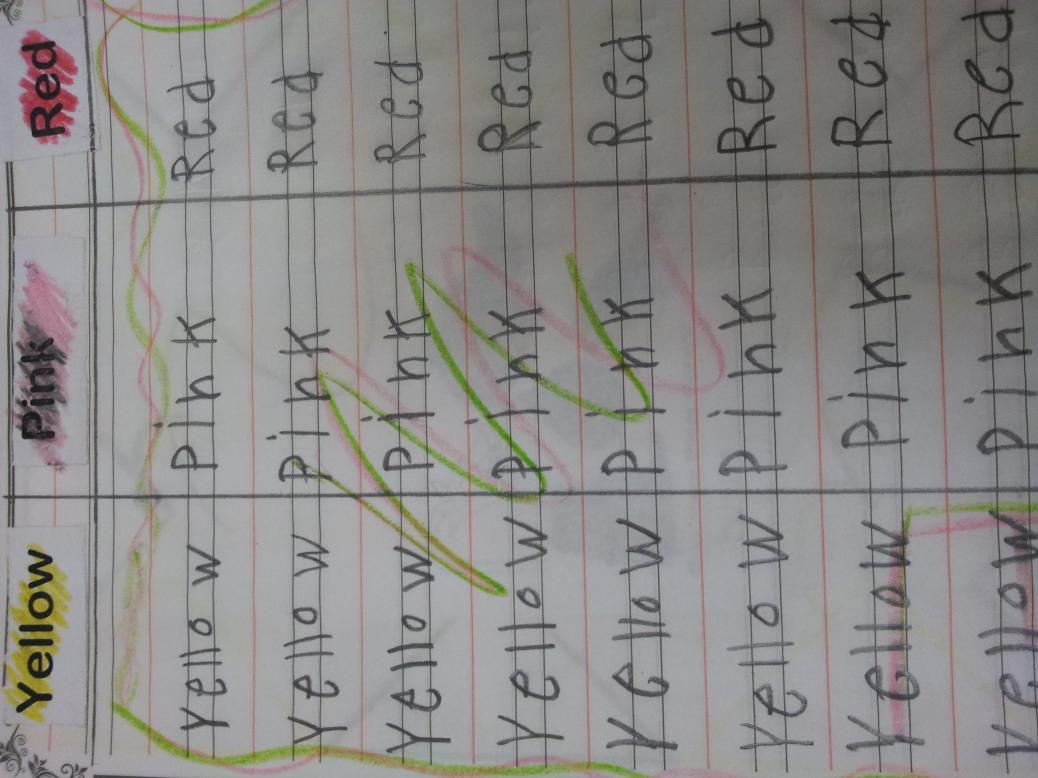 Yellow Pink Red
Yellow Pink Red
Yellow Pink Red
Yellow Pink Red
Yellow Pink Red
Yellow Pink Red
Yellow Pink Red
Yellow Pink Red
Yellow Pink Red